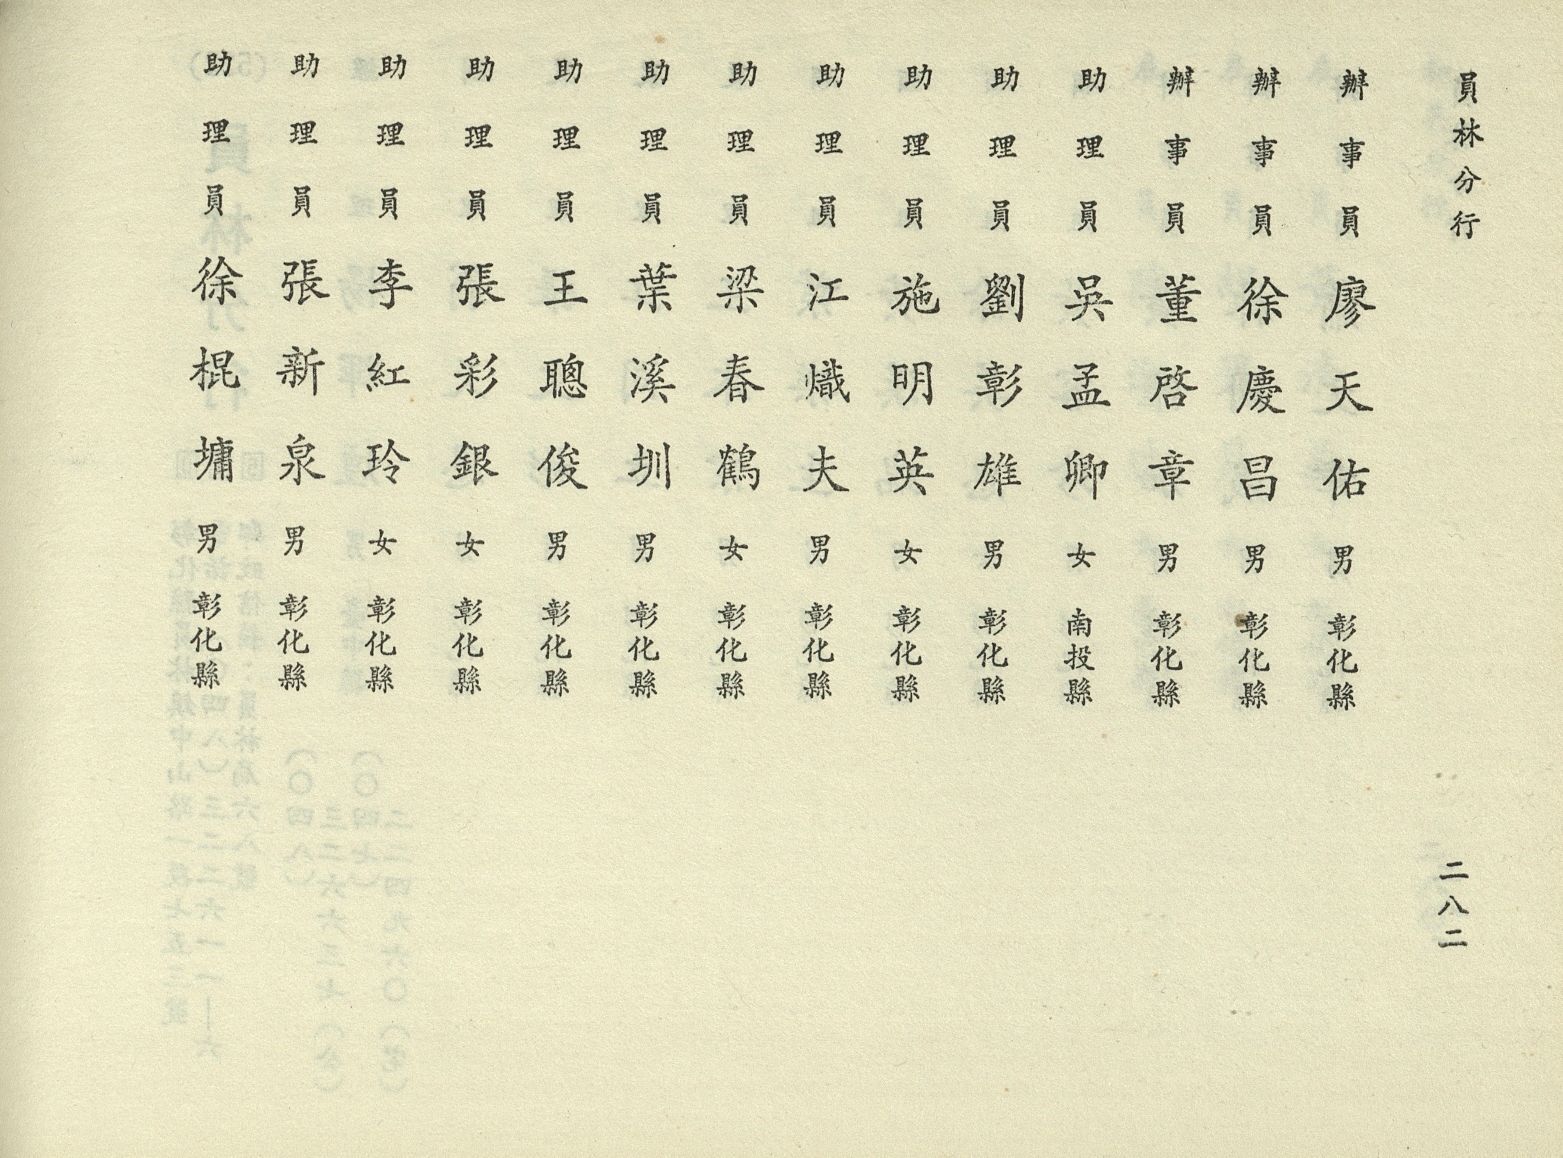 員林分行
二八二
辦事員 廖天佑 男 彰化縣
辦事員 徐慶昌 男 彰化縣
辦事員 董啓章 男 彰化縣
助理員 吳孟卿 女 南投縣
助理員 劉彰雄 男 彰化縣
助理員 施明英 女 彰化縣
助理員 江熾夫 男 彰化縣
助理員 梁春鶴 女 彰化縣
助理員 葉溪圳 男 彰化縣
助理員 王聰俊 男 彰化縣
助理員 張彩銀 女 彰化縣
助理員 李紅玲 女 彰化縣
助理員 張新泉 男 彰化縣
助理員 徐棍墉 男 彰化縣